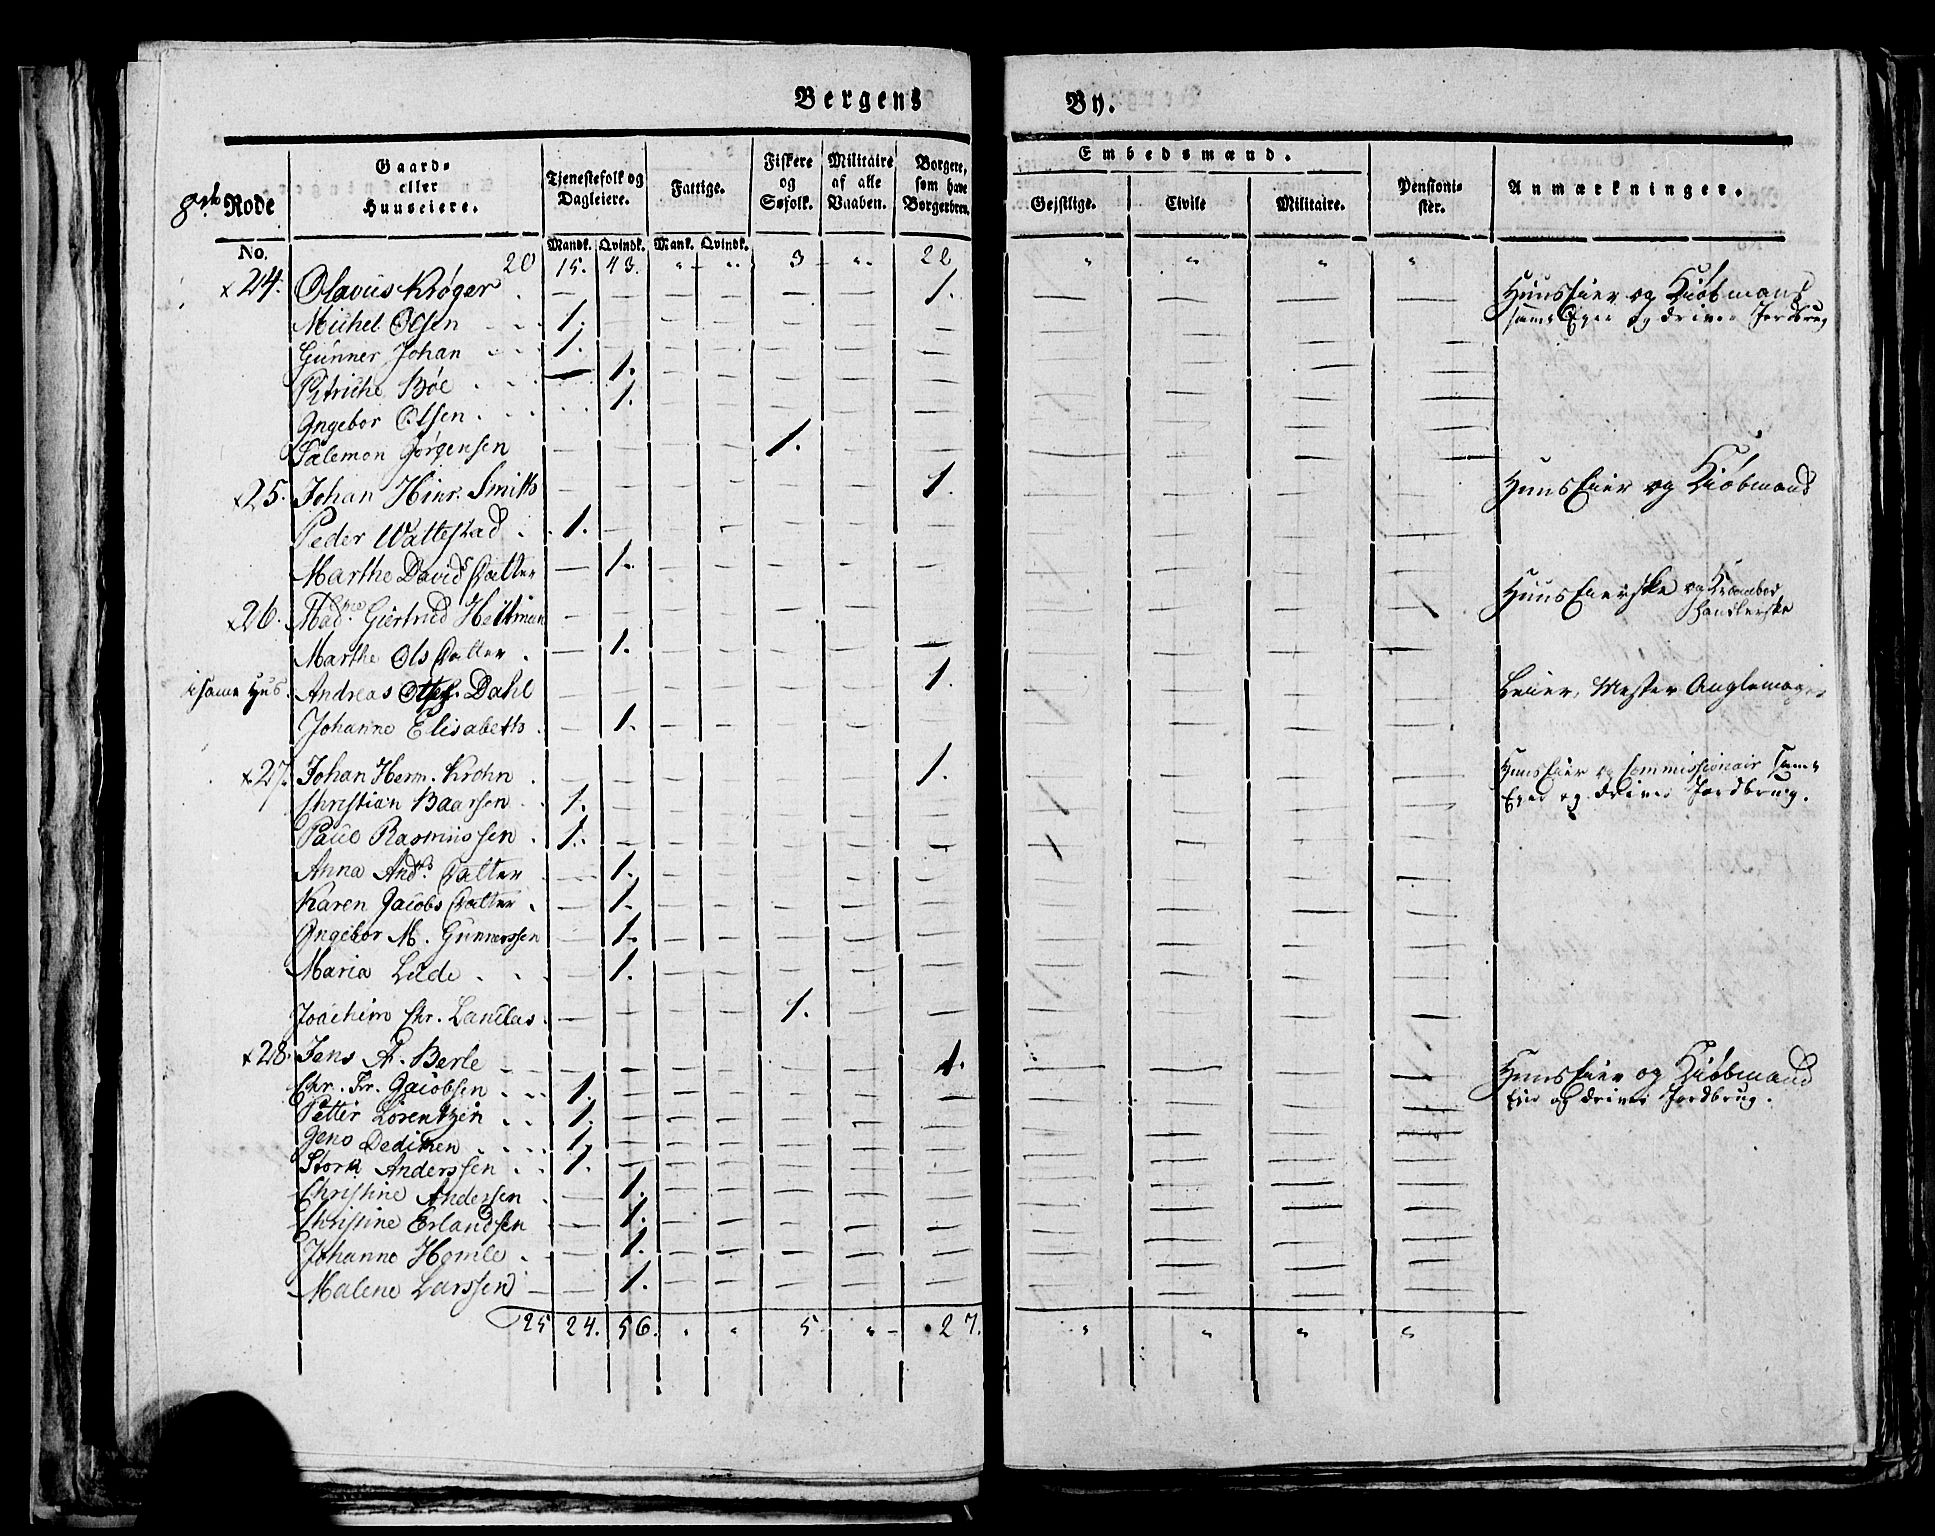 Bergens By.
8de Rode
Gaard- eller Huuseiere.
Tjenestefolk og Dagleiere.
Fattige.
Fiskere og Søfolk.
Militaire af alle Vaaben.
Borgere, som have Borgerbrev.
Embedsmænd.
Gejstlige.
Civile
Militaire.
Pensionister.
Anmærkninger.
No. Mandk. Qvindk. Mank. Qvindk.
20 15. 43. " " 3 " 22 " " " "
x 24. Olavus Krøger — — — — — — 1. — — — — Huuseier og Kiøbmand
samt Eyer og driver Jordbrug
Michel Olsen 1. — — — — — — — — — —
Gunner Johan 1. — — — — — — — — — —
Petriche Bøe — 1. — — — — — — — — —
Ingebor Olsen 1. — — — — — — — — —
Salemon Jørgensen — — — — 1. — — — — — —
x 25. Johan Hinr. Smith — — — — — — 1. — — — — Huus Eier og Kiøbmand
Peder Wattestad 1. — — — — — — — — — —
Marthe Davids Datter — 1. — — — — — — — — —
x 26. Mad. Giertrud Heitman — — — — — — — — — — — Huus Eierske og Krambod
Handlerske
Marthe Ols Datter — 1. — — — — — — — — —
i same Hus. Andreas Dahl — — — — — — 1. — — — — Leier, Mester
Johanne Elisabeth — 1. — — — — — — — — —
x 27. Johan Herm. Krohn — — — — — — 1. — — — — Huus Eier og Commissionair samt
Eyer og driver Jordbrug.
Christian Baarsen 1. — — — — — — — — — —
Paul Rasmussen 1. — — — — — — — — — —
Anna Ands. Datter — 1. — — — — — — — — —
Karen Jacobs Datter — 1. — — — — — — — — —
Ingebor M. Gunnerssen — 1. — — — — — — — — —
Maria Lude — 1. — — — — — — — — —
Joachim Chr. Landaas — — — — 1. — — — — — —
x 28. Jens A. Berle — — — — — — 1. — — — — Huus Eier og Kiøbmand
Eier og driver Jordbrug.
Chr. Fr. Jacobsen 1. — — — — — — — — — —
Petter Lorentzen 1. — — — — — — — — — —
Jens Dedichen 1. — — — — — — — — — —
Anderssen 1. — — — — — — — — — —
Christine Andersen — 1. — — — — — — — — —
Christine Erlandsen — 1. — — — — — — — — —
Johanne Homle — 1. — — — — — — — — —
Malene Larssen — 1. — — — — — — — — —
25 24. 56. " " 5 " 27. " " " "